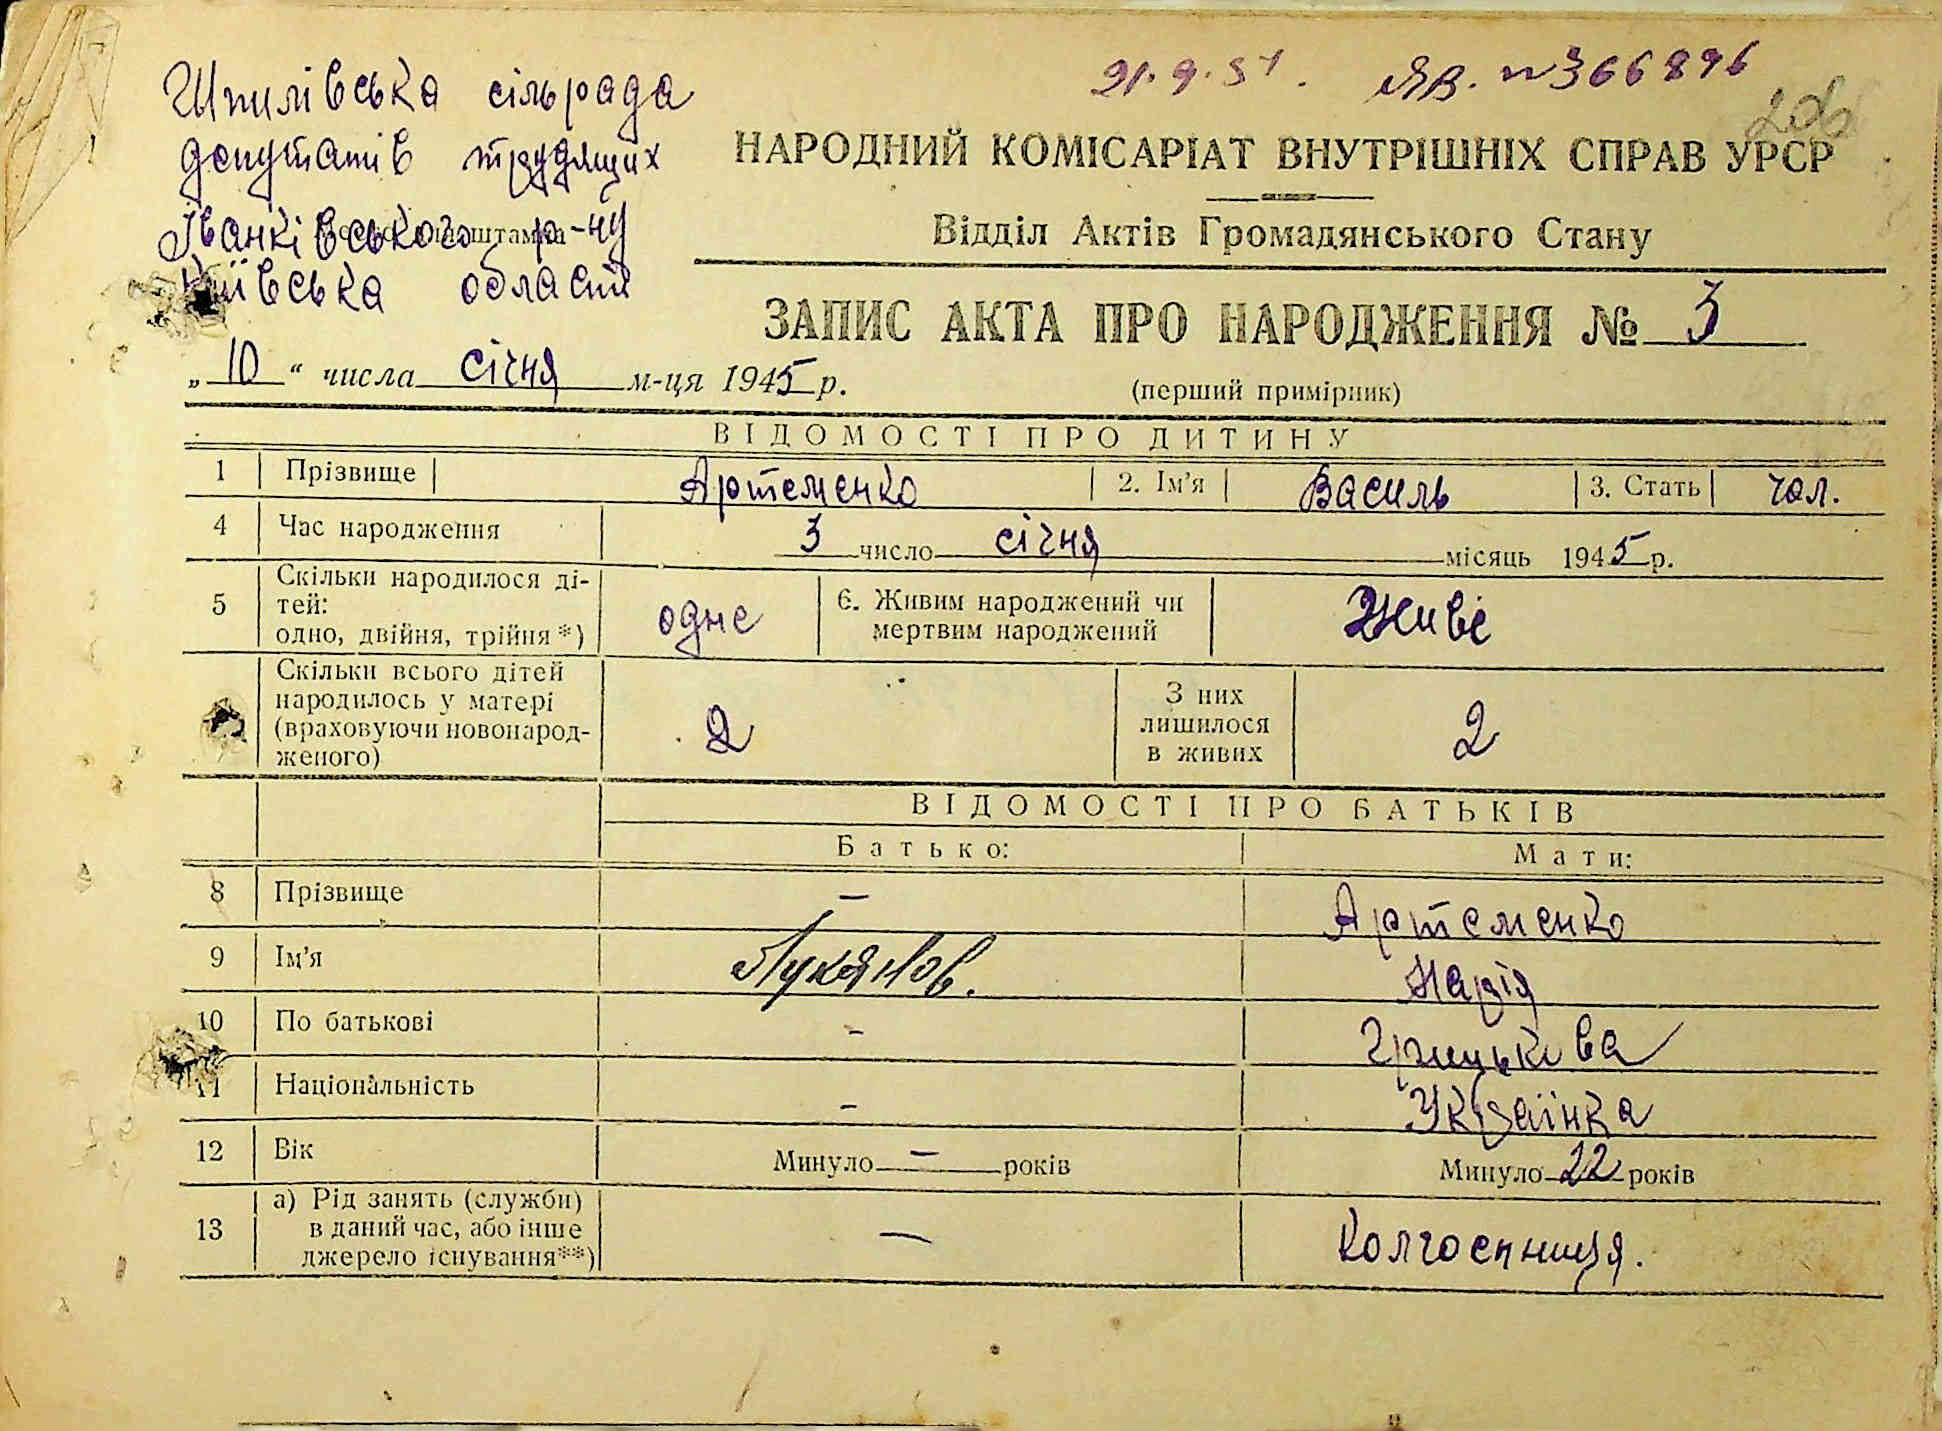 Шпилівська сільрада
депутатів трудящих
Іванківського р-ну
Київська області
21.9.51. ЯВ. №366896
НАРОДНИЙ КОМІСАРІАТ ВНУТРІШНІХ СПРАВ УРСР
Відділ Актів Громадянського Стану
ЗАПИС АКТА ПРО НАРОДЖЕННЯ № 3
„10“ числа січня м-ця 1945 р.
(перший примірник)
ВІДОМОСТІ ПРО ДИТИНУ
1 Прізвище Артеменко 2. Ім'я Василь 3. Стать чол.
4 Час народження 3 число січня місяць 1945 р.
5 Скільки народилося ді-
тей:
одно, двійня, трійня*) одне Є. Живим народжений чи
мертвим народжений Живе
Скільки всього дітей
народилось у матері
(враховуючи новонарод-
женого) 2 З них
лишилося
в живих 2
ВІДОМОСТІ ПРО БАТЬКІВ
Батько: Мати:
8 Прізвище — Артеменко
9 Ім'я Лукянов. Надія
10 По батькові - Грицькова
11 Національність - Українка
12 Вік Минуло — років Минуло 22 років
13 а) Рід занять (служби)
в даний час, або інше
джерело існування**) — Колгоспниця.